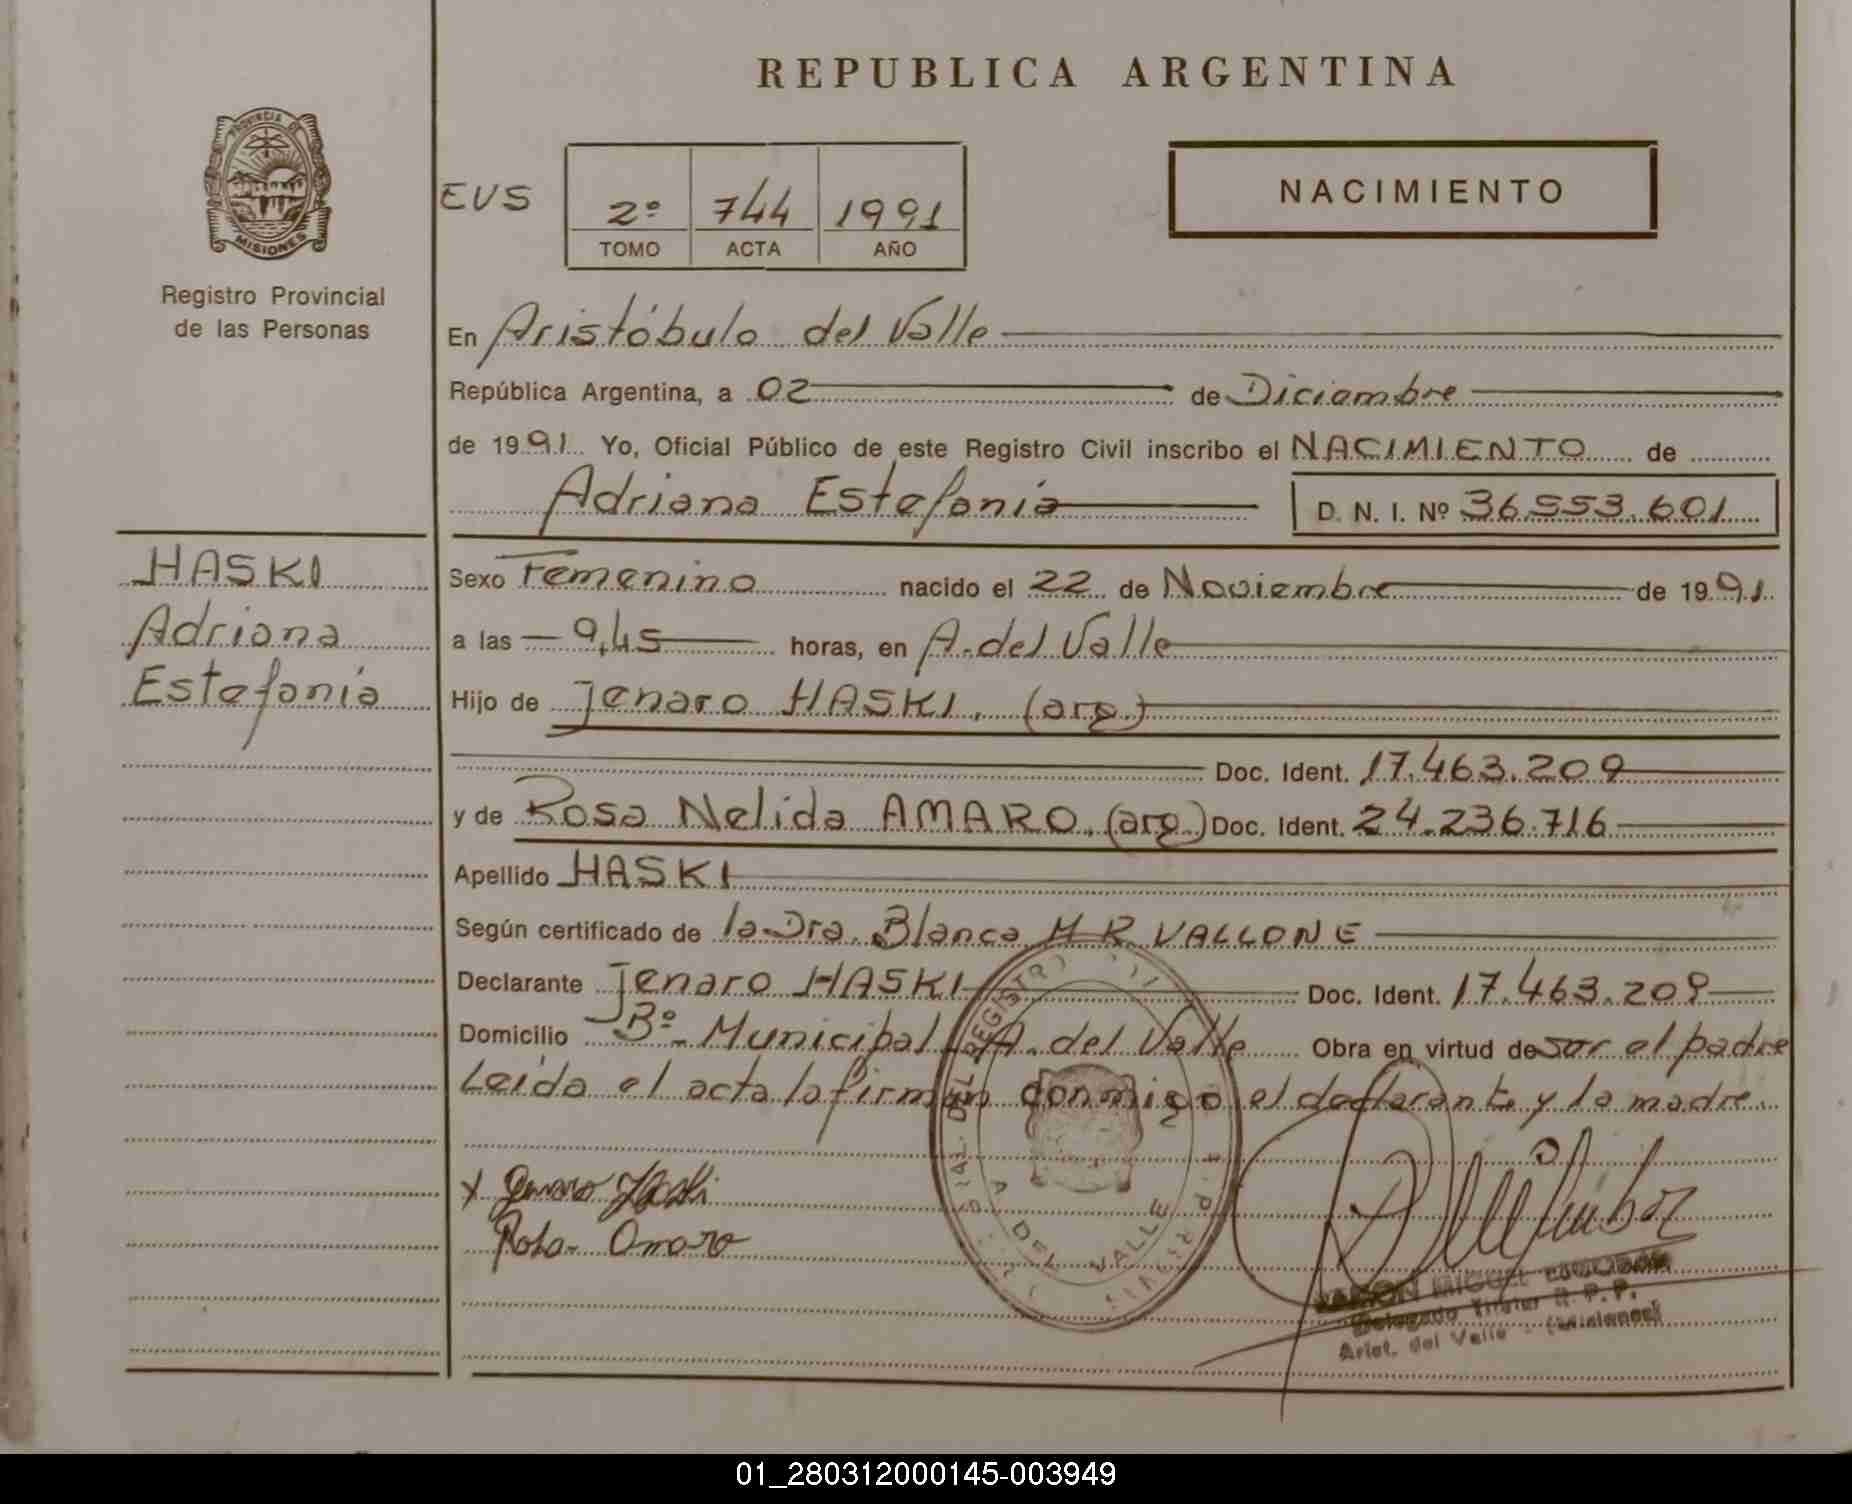 REPUBLICA ARGENTINA
PROVINCIA DE MISIONES
Registro Provincial
de las Personas
EVS
2º 744 1991
TOMO ACTA AÑO
NACIMIENTO
En Aristóbulo del Valle
República Argentina, a 02 de Diciembre
de 1991. Yo, Oficial Público de este Registro Civil inscribo el NACIMIENTO de
Adriana Estefanía
D. N. I. Nº 36.553.601
HASKI
Adriana
Estefanía
Sexo Femenino nacido el 22 de Noviembre de 1991.
a las 9,45 horas, en A. del Valle
Hijo de Jenaro HASKI. (arg.)
Doc. Ident. 17.463.209
y de Rosa Nelida AMARO. (arg.) Doc. Ident. 24.236.716
Apellido HASKI
Según certificado de la Dra. Blanca M R VALLONE
Declarante Jenaro HASKI Doc. Ident. 17.463.209
Domicilio Bº Municipal - A. del Valle Obra en virtud de ser el padre
Leída el acta la firman conmigo el declarante y la madre.
x Jenaro Haski
Rosa Amaro
DEL REGISTRO
A DEL VALLE
RAMON MIGUEL ESCOBAR
Delegado Titular R. P. P.
Arist. del Valle - (Misiones)
01_280312000145-003949